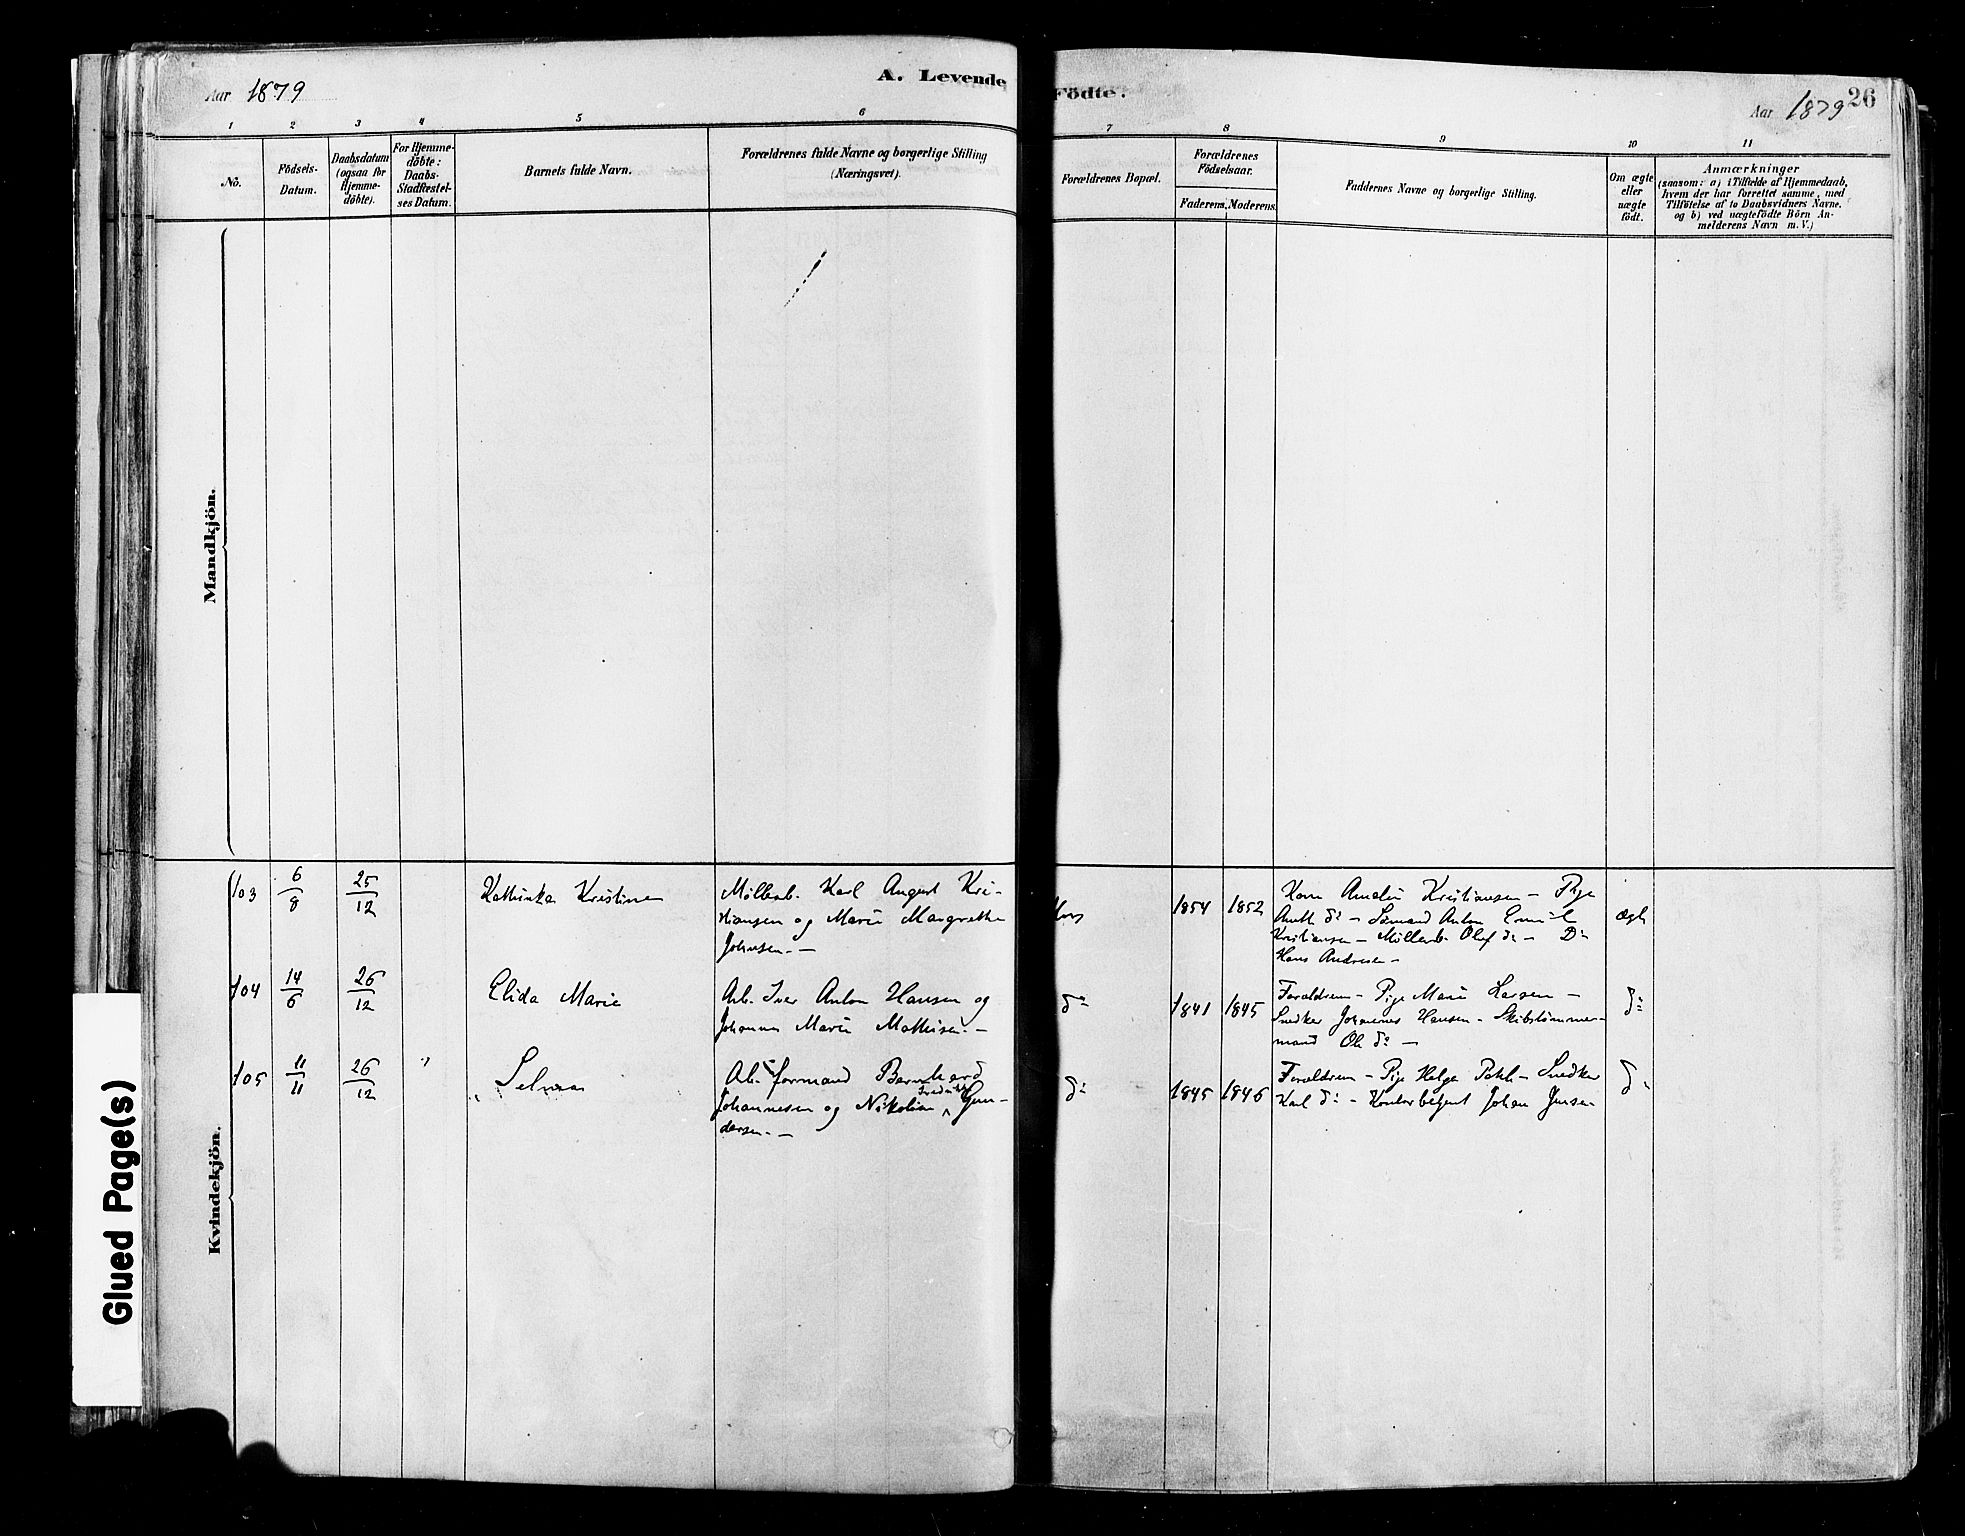 Aar 1879
A. Levende
Födte.
Aar 1879
26
1 2 3 4 5 6
7 8 9 10 11
No.
Födsels-
Datum.
Daabsdatum
(ogsaa for
Hjemme-
döbte).
For Hjemme-
döbte:
Daabs-
Stadfæstel-
ses Datum.
Barnets fulde Navn.
Forældrenes fulde Navne og borgerlige Stilling
(Næringsvei).
Forældrenes Bopæl.
Forældrenes
Födselsaar.
Faderens. Moderens.
Faddernes Navne og borgerlige Stilling.
Om ægte
eller
uægte
födt.
Anmærkninger
(saasom: a) i Tilfælde af Hjemmedaab,
hvem der har forrettet samme, med
Tilföielse af to Daabsvidners Navne,
og b) ved uægtefödte Börn An-
melderens Navn m. V.)
Mandkjön.
Kvindekjön.
103 6/8 25/12 Kathinka Kristine
Møllerb. Karl August Kri-
stiansen og Marie Margrethe
Johnsen. —
1854 1852
Kone Amalie Kristiansen — Pige
Anth do — Sømand Anton Emil
Kristiansen — Møllerb. Oluf do — Do
Hans Andresen —
Ægte
104 14/6 26/12 Elida Marie
Arb. Iver Anton Hansen og
Johanne Marie Mathisen. —
do 1841 1845
Forældrene — Pige Marie Larsen —
Snedker Johannes Hansen — Skibstømmer-
mand Ole do —
do
105 11/11 26/12 " Selma
Arb. formand Bernhard
Johannesen og Nikoline Gun-
dersen. —
do 1845 1846
Forældrene — Pige Helga — Snedker
Karl do — Kontorbetjent Johan Jensen
do
Glued Page(s)